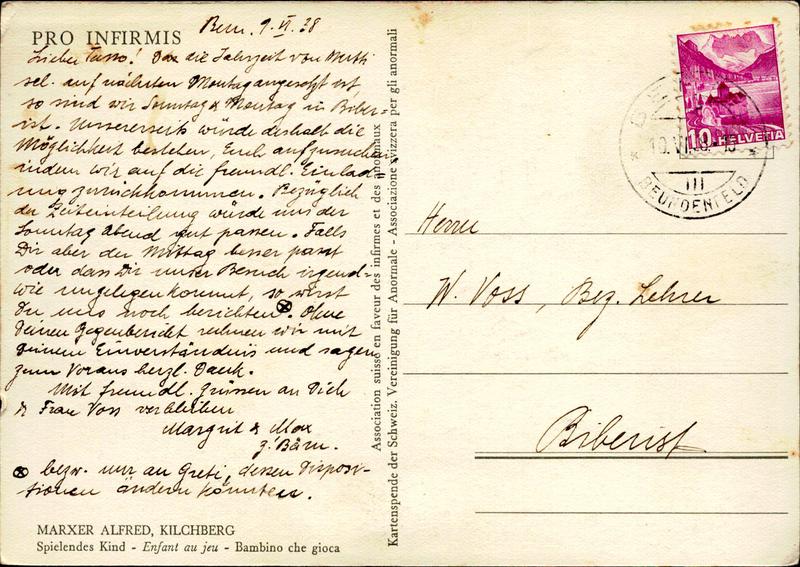 PRO INFIRMIS
Bern, 9. VI. 38
Lieber Tasso! Da die Jahrzeit von
sel. auf nächsten Montag angesetzt ist,
so sind wir Sonntag & Montag in Biber-
ist. Unsererseits würde deshalb die
Möglichkeit bestehen, Euch aufzusuchen
indem wir auf die freundl. Einlad
ung zurückkommen. Bezüglich
der Zeiteinteilung würde uns der
Sonntag Abend gut passen. Falls
Dir aber der Mittag besser passt
oder dass Dir unser Besuch irgend-
wie ungelegen kommt, so wirst
Du uns noch berichten ⊗. Ohne
Deinen Gegenbericht rechnen wir mit
Deinem Einverständnis und sagen
zum Voraus herzl. Dank.
Mit freundl. Grüssen an Dich
& Frau Voss verbleiben
Margrit & Max
z'Bärn.
⊗ bezw. nur an Greti, dessen Disposi-
tionen ändern könnten.
MARXER ALFRED, KILCHBERG
Spielendes Kind - Enfant au jeu - Bambino che gioca
Association suisse en faveur des infirmes et des anormaux
Kartenspende der Schweiz. Vereinigung für Anormale - Associazione svizzera per gli anormali
10 HELVETIA
III
BEUNDENFELD
Herrn
W. Voss, Bez. Lehrer
Biberist